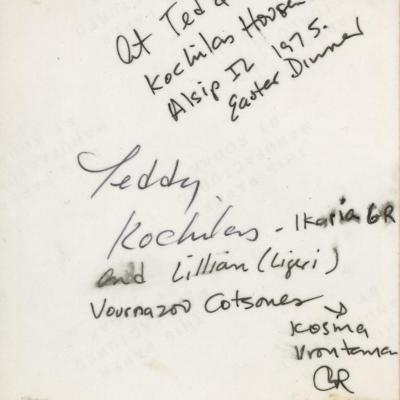 At Ted &
Kochilas House
Alsip IL 1975.
Easter Dinner
Teddy
Kochilas - Ikaria GR
and Lillian (Ligeri)
Vournazou Cotsones
Kosma
Vrontama
GR